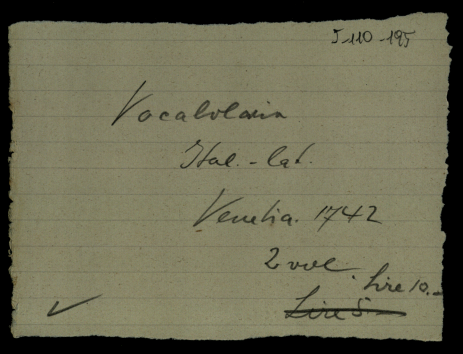 5-110-195
Vocabolario
Ital. - lat.
Venetia. 1742
2 vol.
Lire 10.-
Lire 5.-